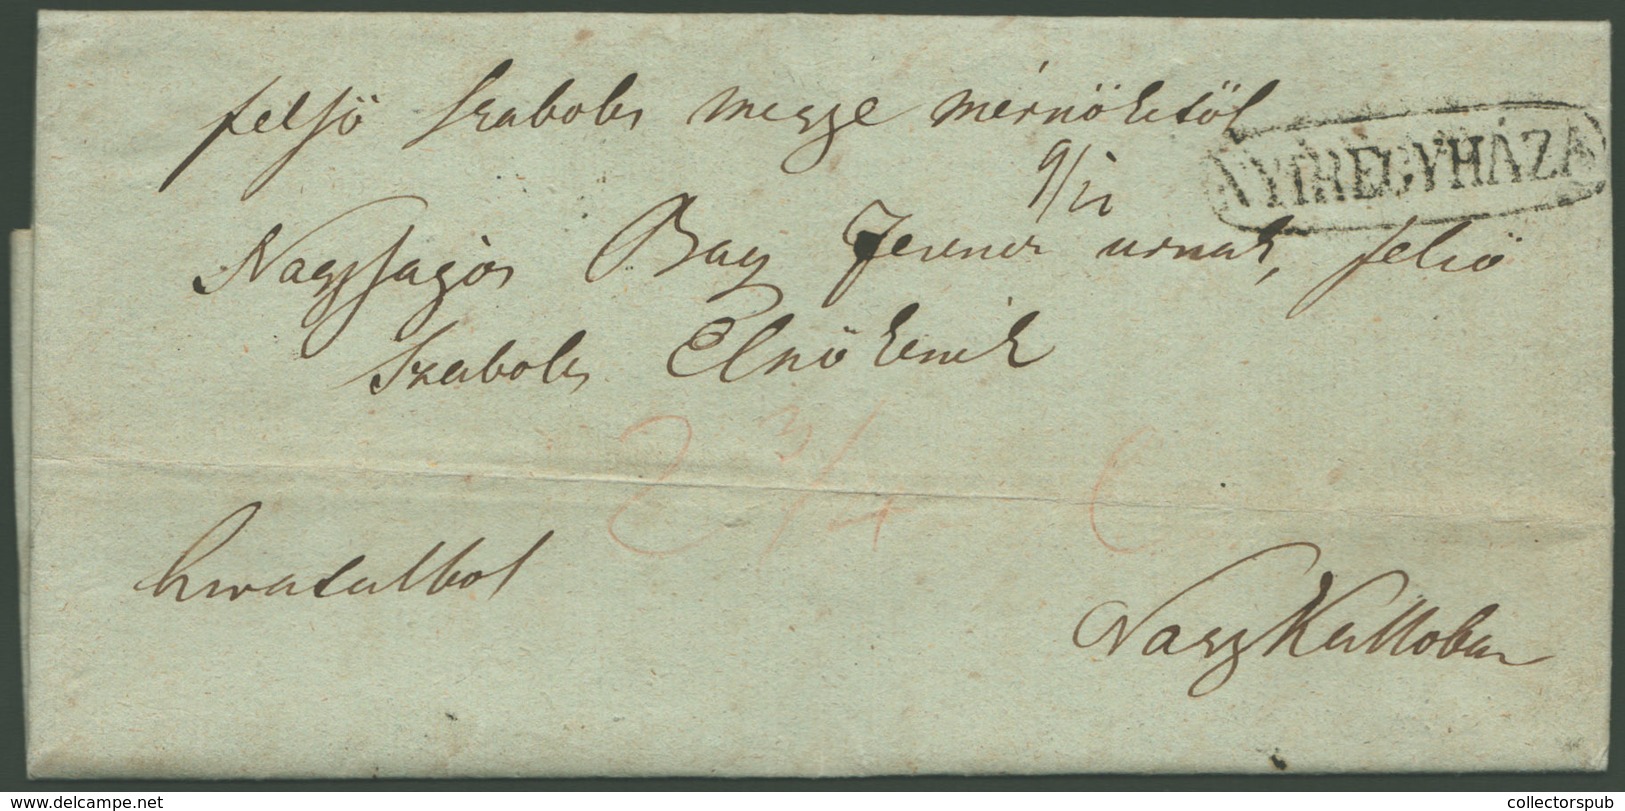 felső Szabolcs megye mérnökétöl
NYIREGYHÁZA
9/ii
Nagyságos Bay Ferencz urnak, felső
Szabolcs Elnökenek
2 3/4
hivatalbol
Nagy Kalloban
www.delcampe.net
collectorspub